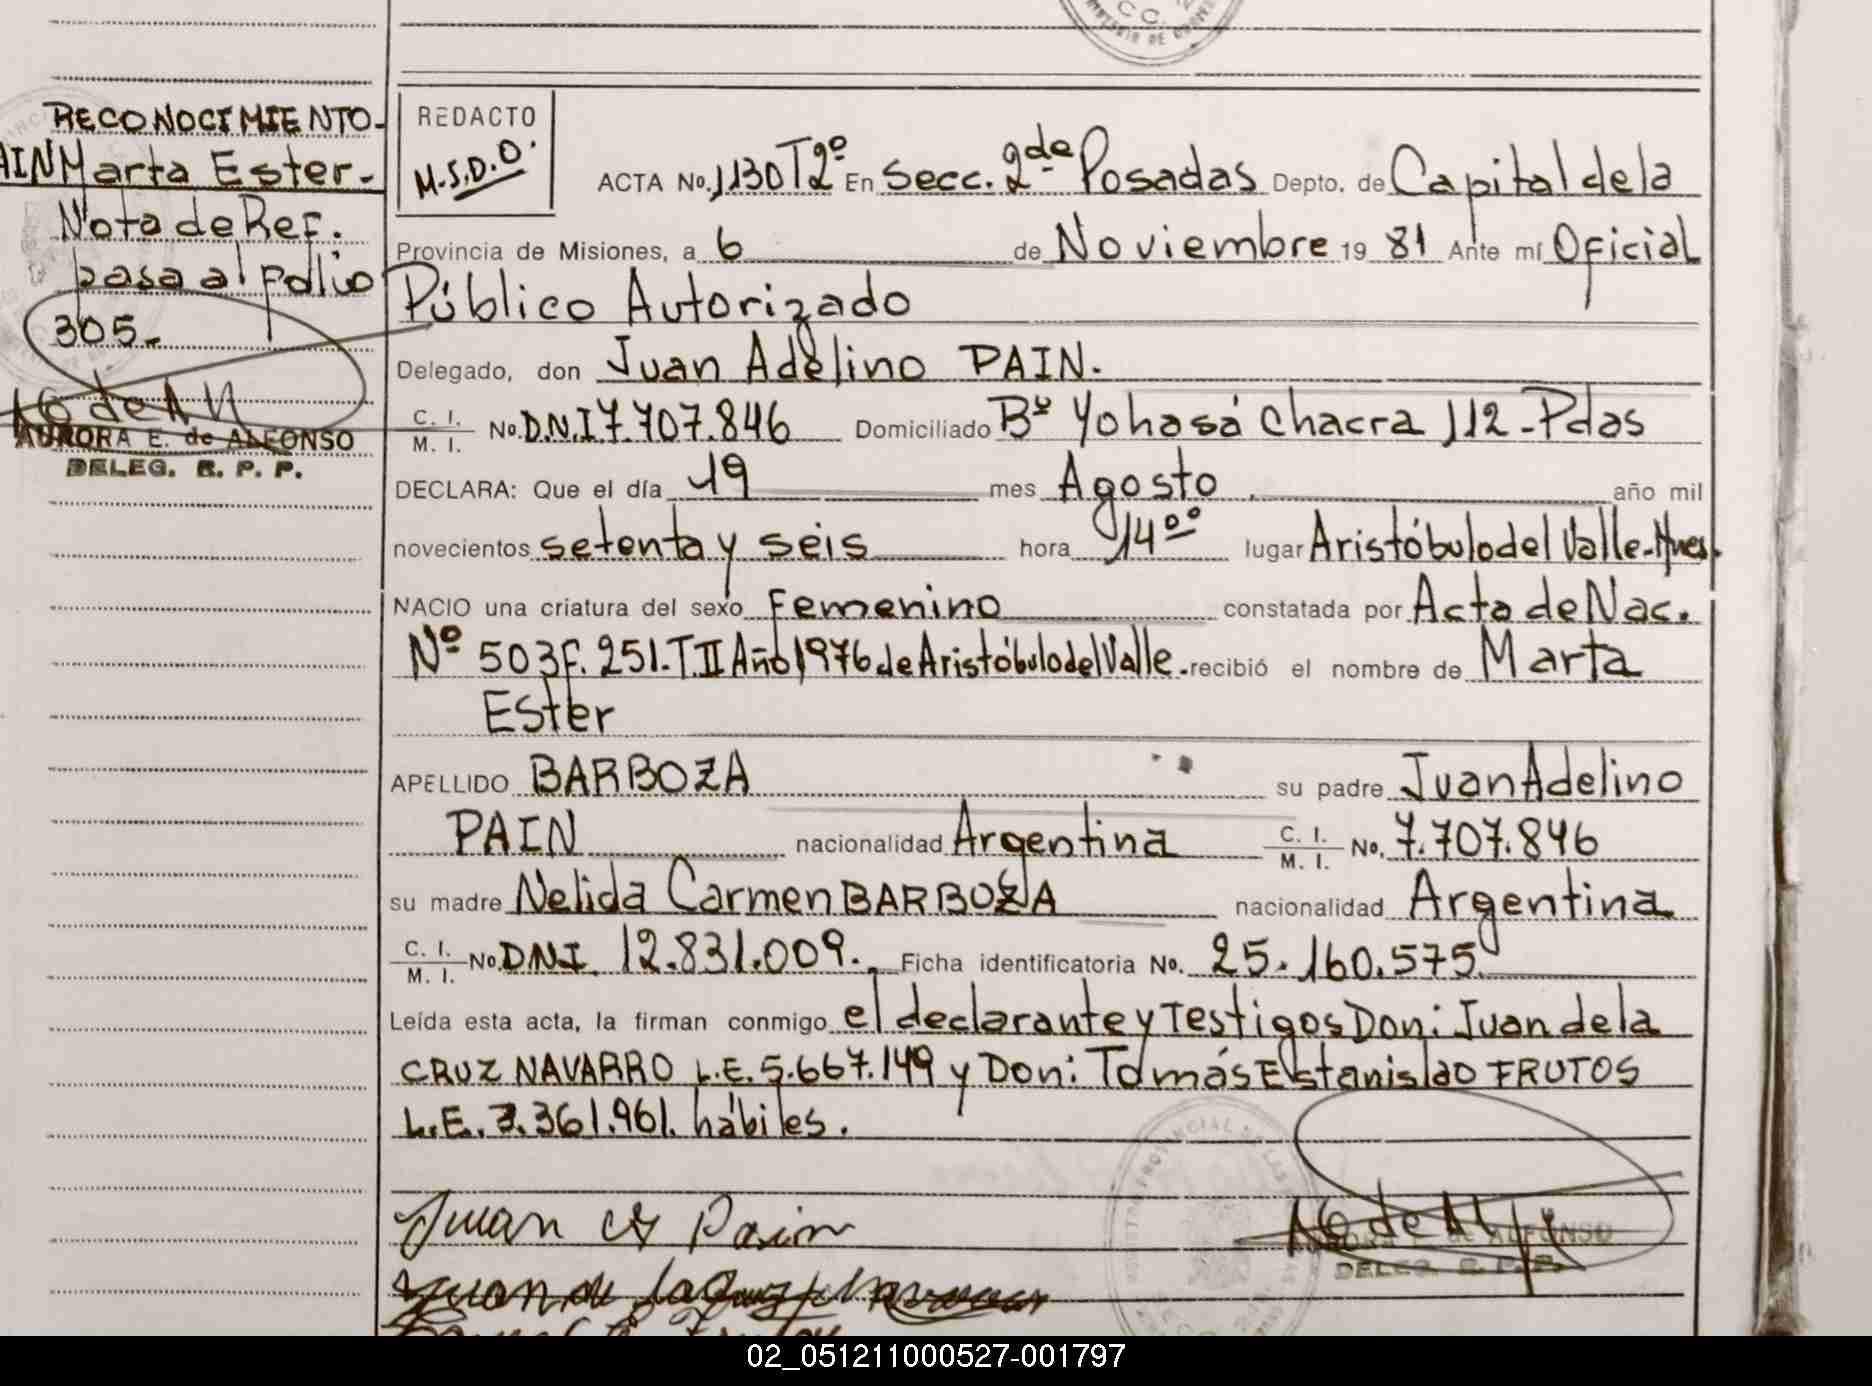 RECONOCIMIENTO-
AIN Marta Ester-
Nota de Ref.
pasa al folio
305.-
AURORA E. de ALFONSO
DELEG. R. P. P.
REDACTO
M.S.D.O.
ACTA No. 1130 T2º En Secc. 2da Posadas Depto. de Capital de la
Provincia de Misiones, a 6 de Noviembre 19 81 Ante mí Oficial
Público Autorizado
Delegado, don Juan Adelino PAIN.
C. I. M. I. No. D.N.I 7.707.846 Domiciliado Bº Yohasá Chacra 112-Pdas
DECLARA: Que el día 19 mes Agosto año mil
novecientos setenta y séis hora 14ºº lugar Aristóbulo del Valle-Mnes.
NACIO una criatura del sexo Femenino constatada por Acta de Nac.
Nº 503 F. 251. T. II Año 1976 de Aristóbulo del Valle. recibió el nombre de Marta
Ester
APELLIDO BARBOZA su padre Juan Adelino
PAIN nacionalidad Argentina C. I. M. I. No. 7.707.846
su madre Nelida Carmen BARBOZA nacionalidad Argentina
C. I. M. I. No. DNI. 12.831.009. Ficha identificatoria No. 25.160.575.
Leída esta acta, la firman conmigo el declarante y Testigos Don: Juan de la
CRUZ NAVARRO L.E. 5.667.149 y Don: Tomás Estanislao FRUTOS
L.E. 3.361.961. hábiles.
Juan A Pain
DELEG. R. P. P.
02_051211000527-001797